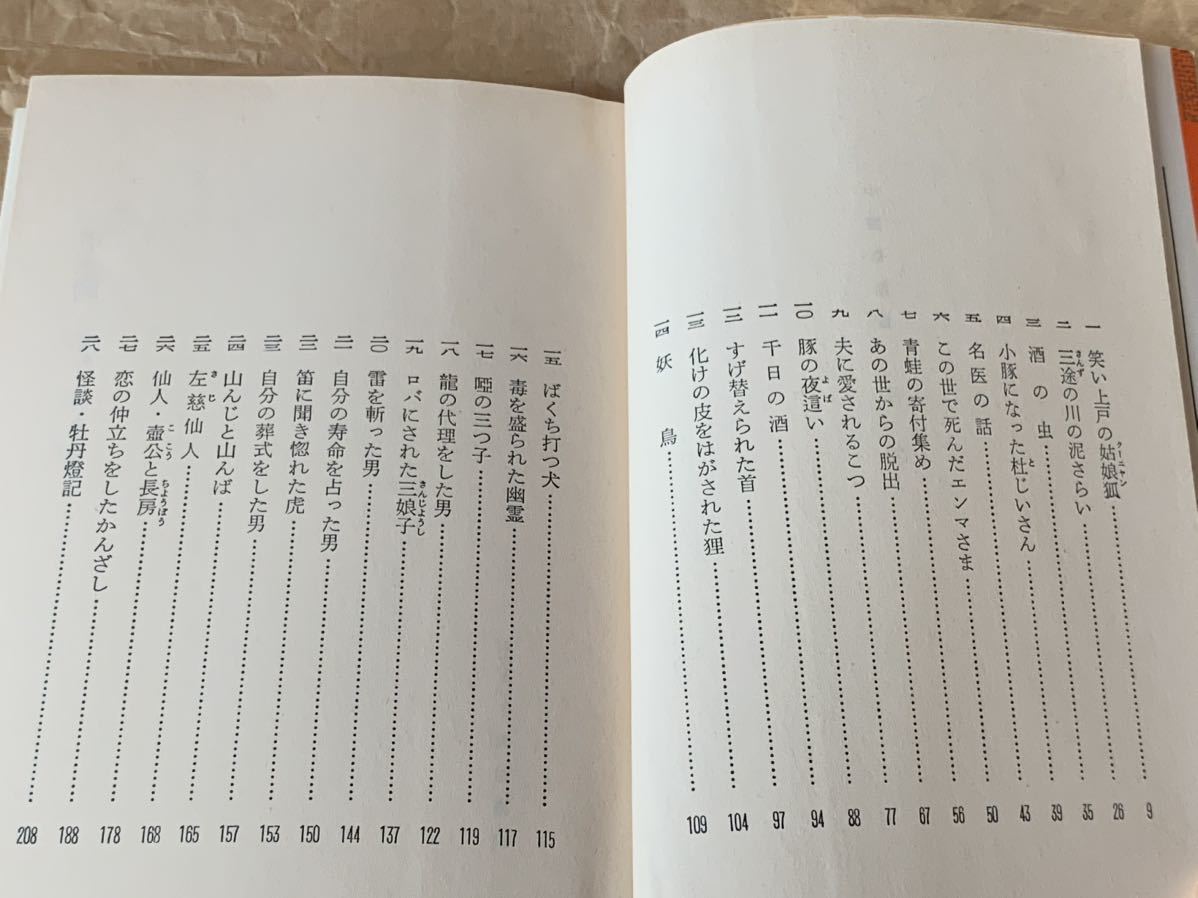 一 笑い上戸の姑娘狐 9
クーニャン
二 三途の川の泥さらい 26
さんず
三 酒の虫 35
四 小豚になった杜じいさん 39
と
五 名医の話 43
六 この世で死んだエンマさま 50
七 青蛙の寄付集め 56
八 あの世からの脱出 67
九 夫に愛されるこつ 77
一〇 豚の夜這い 88
よば
一一 千日の酒 94
一二 すげ替えられた首 97
一三 化けの皮をはがされた狸 104
一四 妖鳥 109
一五 ばくち打つ犬 115
一六 毒を盛られた幽霊 117
一七 啞の三つ子 119
一八 龍の代理をした男 122
一九 ロバにされた三娘子 137
さんじようし
二〇 雷を斬った男 144
二一 自分の寿命を占った男 150
二二 笛に聞き惚れた虎 153
二三 自分の葬式をした男 157
二四 山んじと山んば 165
二五 左慈仙人 168
さじ
二六 仙人・壺公と長房 178
ここう ちようぼう
二七 恋の仲立ちをしたかんざし 188
二八 怪談・牡丹燈記 208